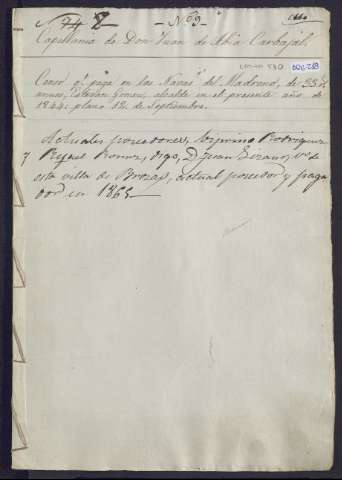 74 8 - Nº 9 -
Capellania de Don Juan de Abia Carbajal.
Censo q.e paga en las Navas del Madroño, de 33 r.s
annuo, Esteban Gomez, alcalde en el presente año de
1844: plazo 12 de Septiembre.
Actuales poseedores, Zeferino Rodriguez
y Reyes Romo, digo, D. Juan Lizaur, v.o de
esta villa de Brozas, actual poseedor y paga
dor en 1865